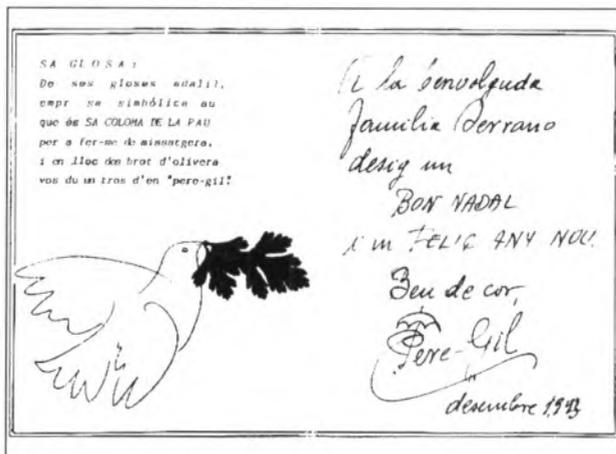 SA GLOSA:
De ses gloses adalil,
empr sa simbólica au
que és SA COLOMA DE LA PAU
per a fer-me de missatgera,
i en lloc des brot d'olivera
vos du un tros d'en "pere-gil".
A la benvolguda
Familia Serrano
desig un
BON NADAL
i un FELIÇ ANY NOU.
Seu de cor,
Pere-Gil
desembre